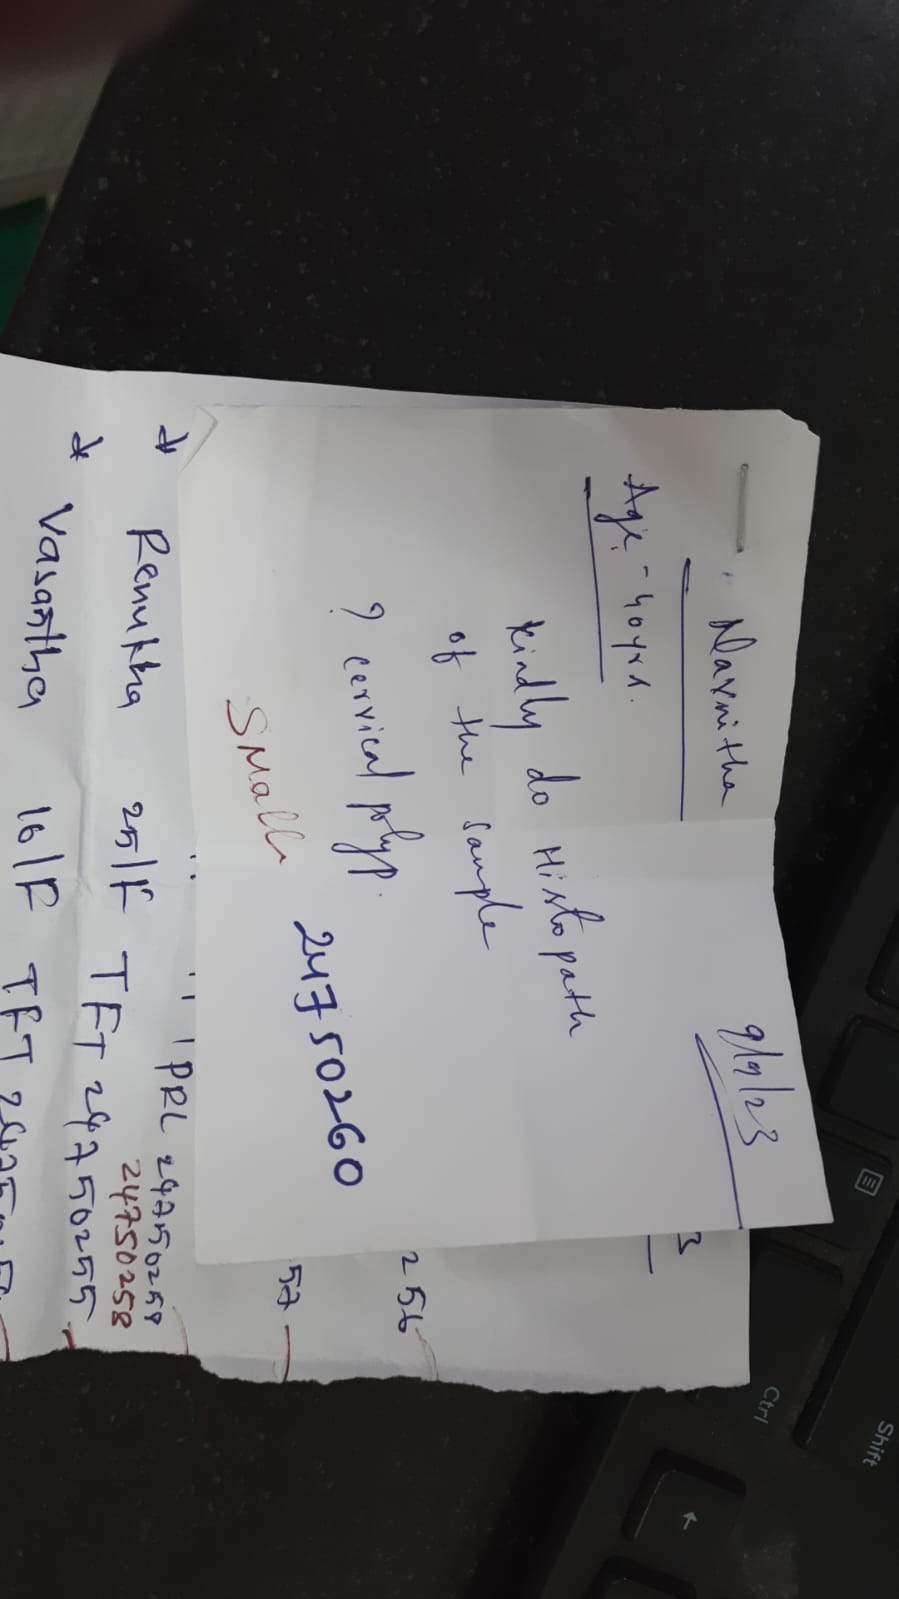 9/9/23
Navnitha
Age - 40yrs.
kindly do Histopath
of the sample
? cervical polyp.
24750260
Small
3
256
57
PRL 24750259
24750258
* Renukha 25/F TFT 24750255
* Vasantha 16/F TFT
Ctrl
Shift